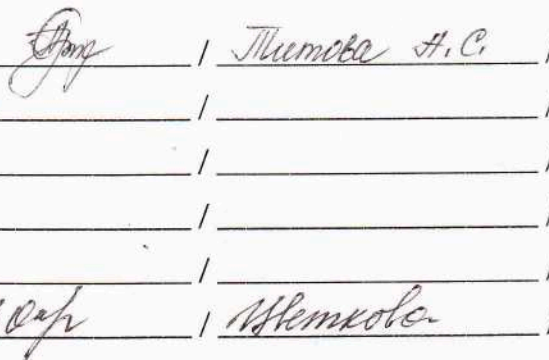 / Титова Н.С. /
/ /
/ /
/ /
/ /
/ Цветкова /